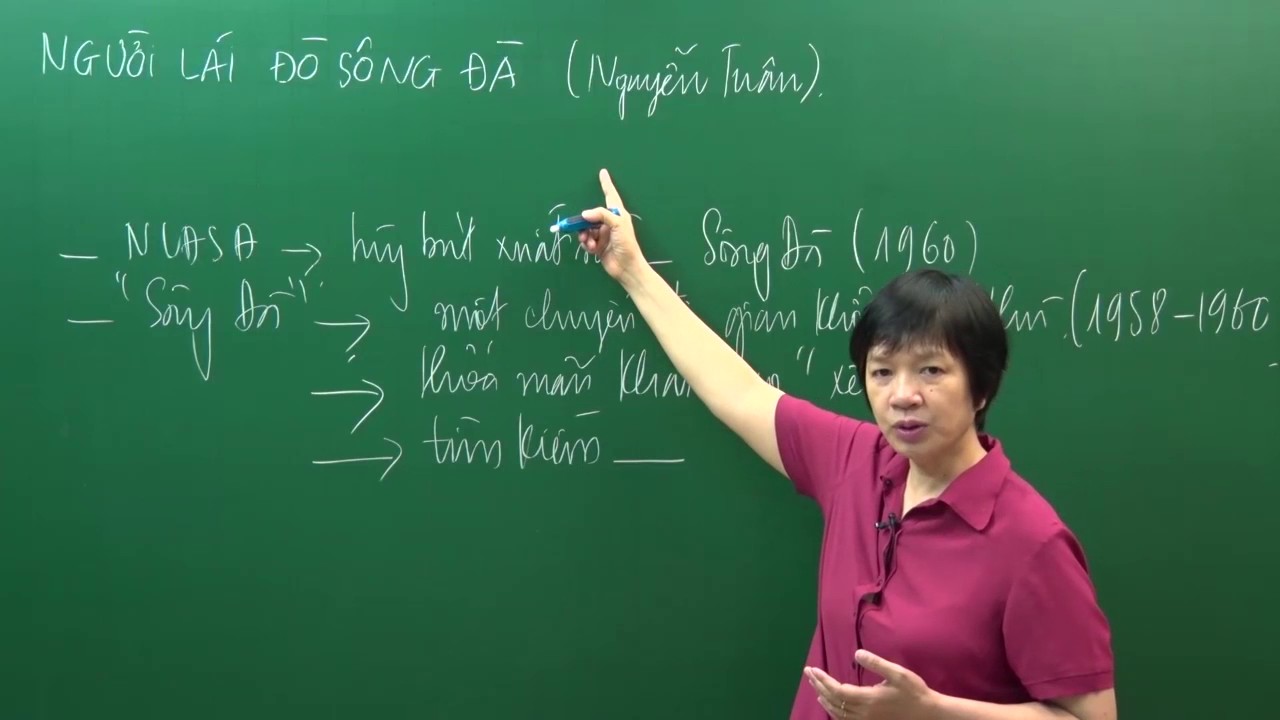 NGƯỜI LÁI ĐÒ SÔNG ĐÀ (Nguyễn Tuân).
_ NLĐSĐ → tùy bút xuất _ Sông Đà (1960)
_ "Sông Đà" → một chuyến gian khổ (1958-1960
→ thỏa mãn khát "xê
→ tìm kiếm __